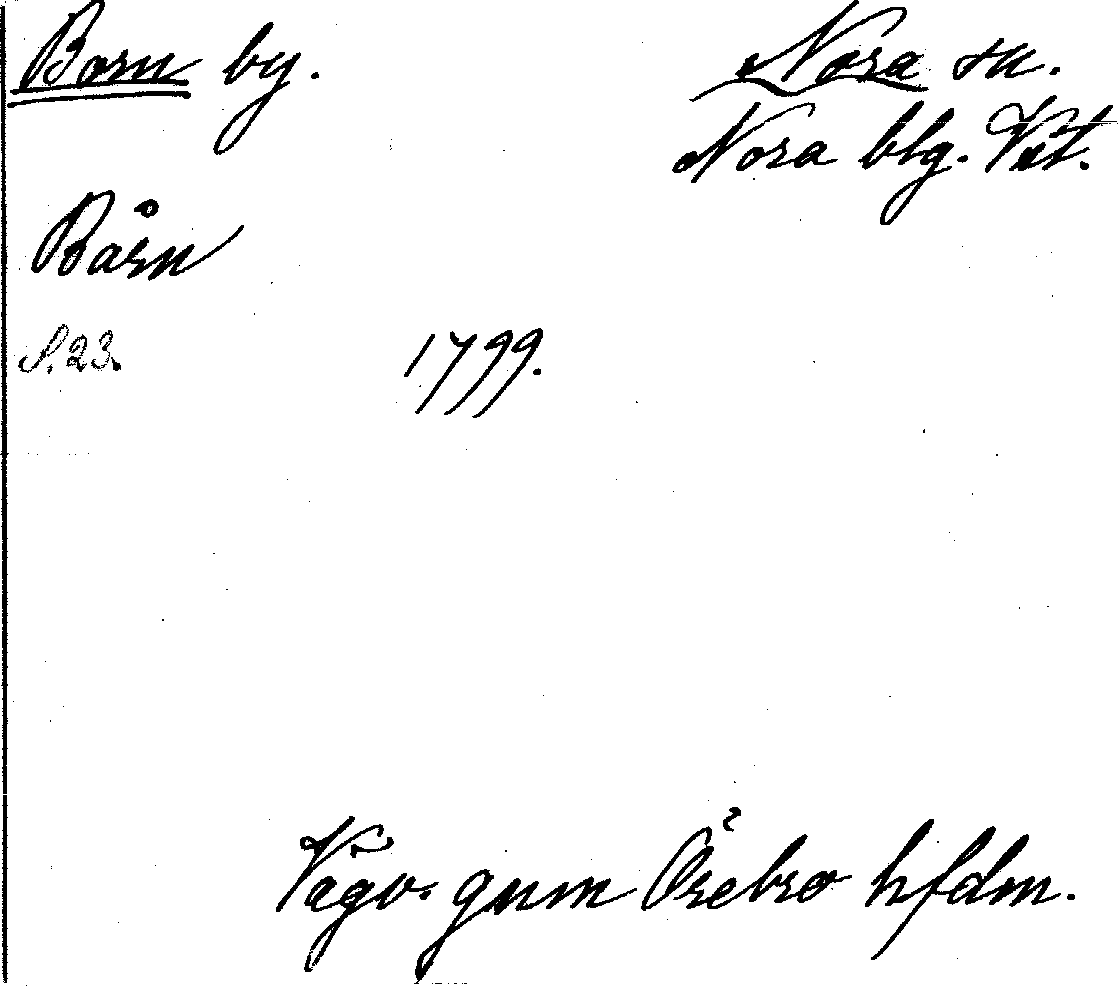 Born by.
Nora sn.
Nora blg. Vst.
Bårn
S. 23.
1799.
Vägv. gnm Örebro hfdm.